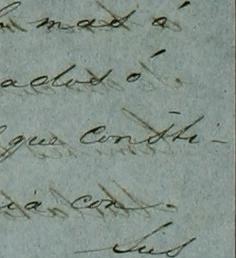 mas á
ados ó
que consti-
ia con-
sus